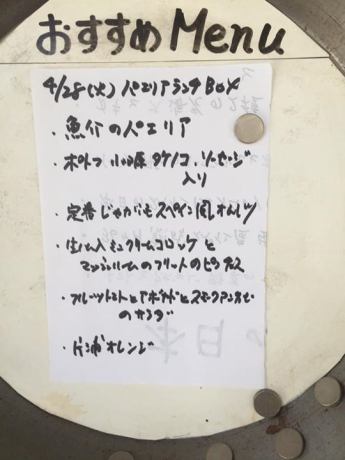 おすすめ Menu
4/28(火) パエリアランチBOX
・魚介のパエリア
・ポトフ 小田原タケノコ、ソーセージ
入り
・定番じゃがいもスペイン風オムレツ
・生ハムミニクリームコロッケと
マッシュルームのフリットのピンチョス
・フルーツトマトとアボカドとスモークアンチョビ
のサラダ
・片浦オレンジ